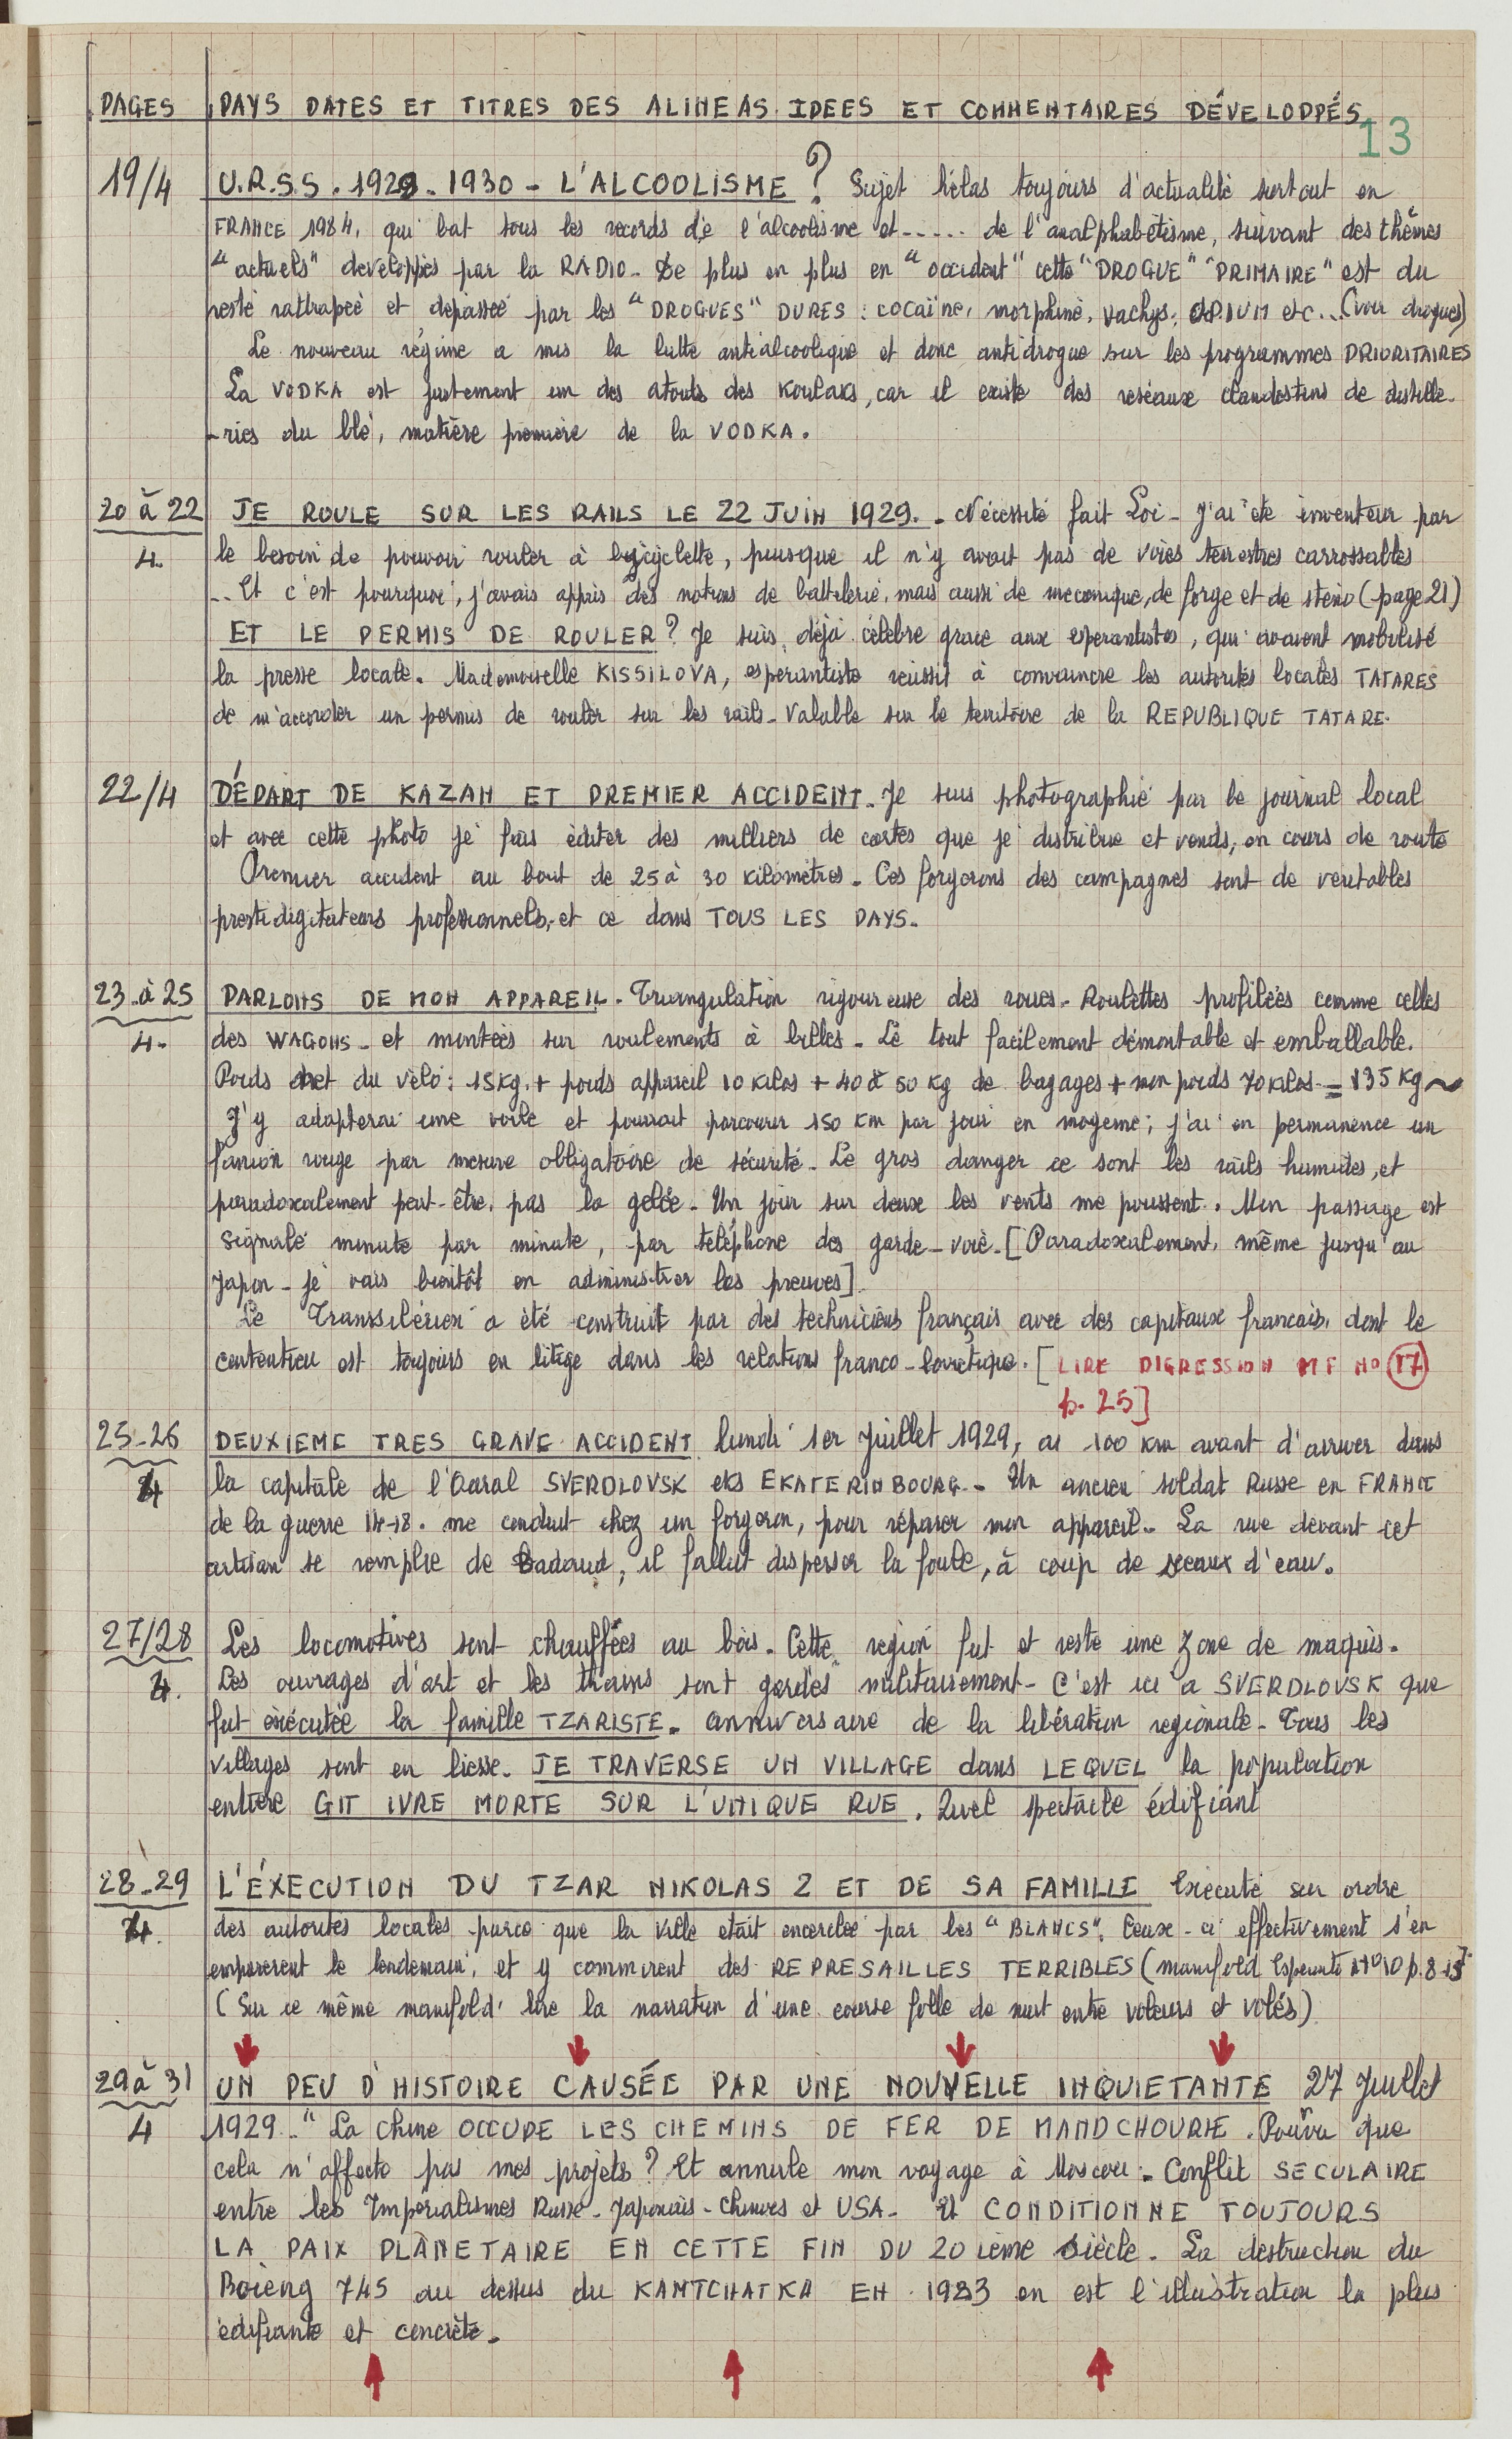 PAGES PAYS DATES ET TITRES DES ALINEAS. IDEES ET COMMENTAIRES DÉVELOPPÉS
13
19/4 U.R.S.S. 1929. 1930 - L'ALCOOLISME ? Sujet hélas toujours d'actualité surtout en
FRANCE 1984, qui bat tous les records de l'alcoolisme et ..... de l'analphabétisme, suivant des thêmes
"actuels" developpés par la RADIO. De plus en plus en "occident" cette "DROGUE" "PRIMAIRE" est du
reste rattrapeé et dépasseé par les "DROGUES" DURES : cocaïne, morphine, vachys, OPIUM etc... (voir drogues)
Le nouveau régime a mis la lutte antialcoolique et donc antidrogue sur les programmes PRIORITAIRES
La VODKA est justement un des atouts des Koulaks, car il existe des reséaux clandestins de distille-
-ries du blé, matière première de la VODKA.
20 à 22 JE ROULE SUR LES RAILS LE 22 JUIN 1929. - Nécessité fait Loi - J'ai été inventeur par
4. le besoin de pouvoir rouler à bycyclette, puisque il n'y avait pas de voies terrestres carrossables
... Et c'est pourquoi, j'avais appris des notions de battelerie, mais aussi de mecanique, de forge et de sténo (page 21)
ET LE PERMIS DE ROULER ? Je suis déjà célèbre grace aux esperantistes, qui avaient mobilisé
la presse locale. Mademoiselle KISSILOVA, esperantiste reussit à convaincre les autorités locales TATARES
de m'accorder un permis de rouler sur les rails - Valable sur le territoire de la REPUBLIQUE TATARE.
22/4 DÉPART DE KAZAN ET PREMIER ACCIDENT. Je suis photographié par le journal local
et avec cette photo je fais éditer des milliers de cartes que je distribue et vends, en cours de route
Premier accident au bout de 25 à 30 kilomètres. Ces forgerons des campagnes sont de veritables
prestidigitateurs professionnels, et ce dans TOUS LES PAYS.
23 à 25 PARLONS DE MON APPAREIL. Triangulation rigoureuse des roues. Roulettes profileés comme celles
4. des WAGONS - et monteés sur roulements à billes - Le tout facilement démontable et emballable.
Poids net du vélo : 15 kg. + poids appareil 10 kilos + 40 à 50 kg de bagages + mon poids 70 kilos = 135 kg ~
J'y adapterai une voile et pourrait parcourir 150 km par jour en moyenne ; j'ai en permanence un
fanion rouge par mesure obligatoire de sécurité. Le gros danger ce sont les rails humides, et
paradoxalement peut-être, pas la gelée. Un jour sur deux les vents me poussent. Mon passage est
signalé minute par minute, par teléphone des garde-voie. [Paradoxalement, même jusqu'au
Japon - je vais bientôt en administrer les preuves]
Le Transsibérien a été construit par des techniciens français avec des capitaux francais, dont le
contentieu est toujours en litige dans les relations franco-sovietique. [LIRE DIGRESSION MF NO 17
p. 25]
25-26 DEUXIEME TRES GRAVE ACCIDENT lundi 1er Juillet 1929, a 100 km avant d'arriver dans
4 la capitale de l'Oural SVERDLOVSK eks EKATERINBOURG. - Un ancien soldat Russe en FRANCE
de la guerre 14-18. me conduit chez un forgeron, pour réparer mon appareil. La rue devant cet
artisan se remplie de Badaud, il fallut disperser la foule, à coup de seaux d'eau.
27/28 Les locomotives sont chauffées au bois. Cette region fut et reste une zone de maquis.
4. Les ouvrages d'art et les trains sont gardés militairement - C'est ici a SVERDLOVSK que
fut exécutée la famille TZARISTE. anniversaire de la libération regionale. Tous les
villages sont en liesse. JE TRAVERSE UN VILLAGE dans LEQUEL la population
entière GIT IVRE MORTE SUR L'UNIQUE RUE. Quel spectacle édifiant
28-29 L'ÉXECUTION DU TZAR NIKOLAS 2 ET DE SA FAMILLE Exécuté sur ordre
4. des autorités locales parce que la ville etait encerclée par les "BLANCS". Ceux-ci effectivement s'en
emparerent le lendemain, et y commirent des REPRESAILLES TERRIBLES (manifold Esperanto NO 10 p. 8-13)
(Sur ce même manifold, lire la narration d'une course folle de nuit entre voleurs et volés)
29 à 31 UN PEU D'HISTOIRE CAUSÉE PAR UNE NOUVELLE INQUIETANTE 27 Juillet
4 1929. - "La chine OCCUPE LES CHEMINS DE FER DE MANDCHOURIE. Pourvu que
cela n'affecte pas mes projets ? Et annule mon voyage à Moscou. Conflit SECULAIRE
entre les Imperialismes Russe - Japonais - Chinois et USA. Et CONDITIONNE TOUJOURS
LA PAIX PLANETAIRE EN CETTE FIN DU 20 ième siècle. La destruction du
Boieng 745 au dessus du KAMTCHATKA EN 1983 en est l'illustration la plus
édifiante et concrète.